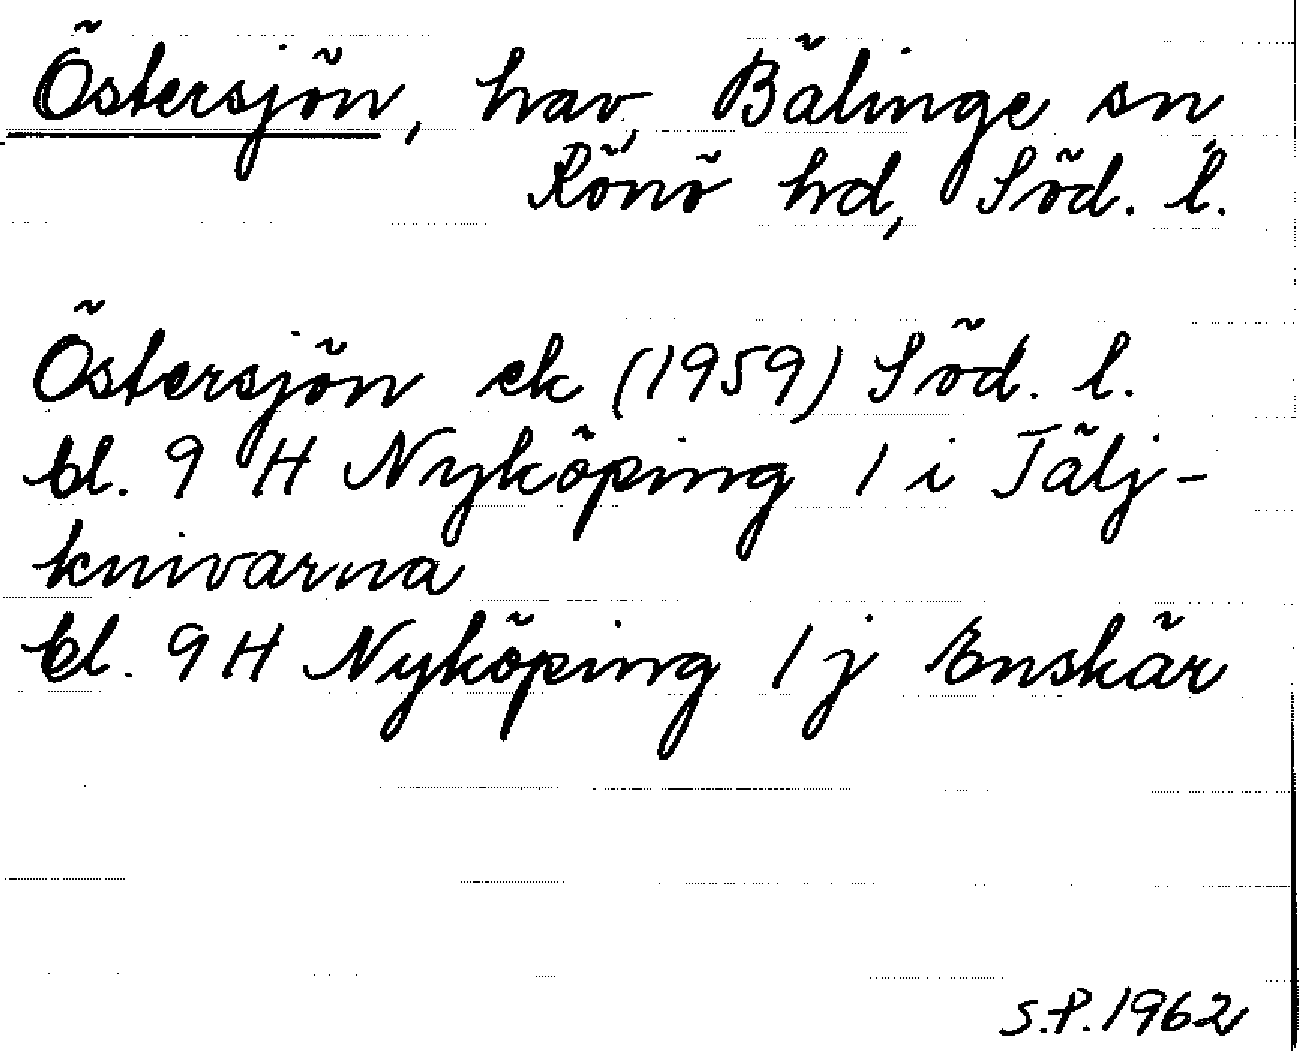 Östersjön, hav, Bälinge sn,
Rönö hd, Söd. l.
Östersjön ek (1959) Söd. l.
bl. 9 H Nyköping 1 i Tälj-
knivarna
bl. 9 H Nyköping 1 j Enskär
S.P. 1962